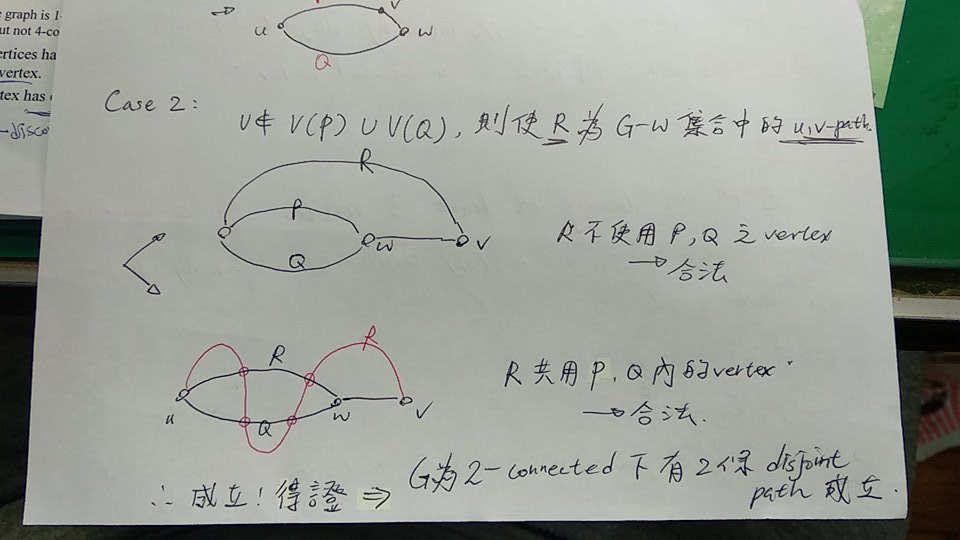 e graph is 1-
ut not 4-co
ertices ha
vertex.
tex has
→ disco
→ u v w
Q
Case 2:
V∉ V(P) ∪ V(Q), 則使 R 為 G-W 集合中的 u,v-path.
R
P
Q w v
R 不使用 P, Q 之 vertex
→ 合法
R R
u Q w v
R 共用 P, Q 內的 vertex
→ 合法.
∴ 成立! 得證 ⇒ G為 2-connected 下有 2條 disjoint
path 成立.